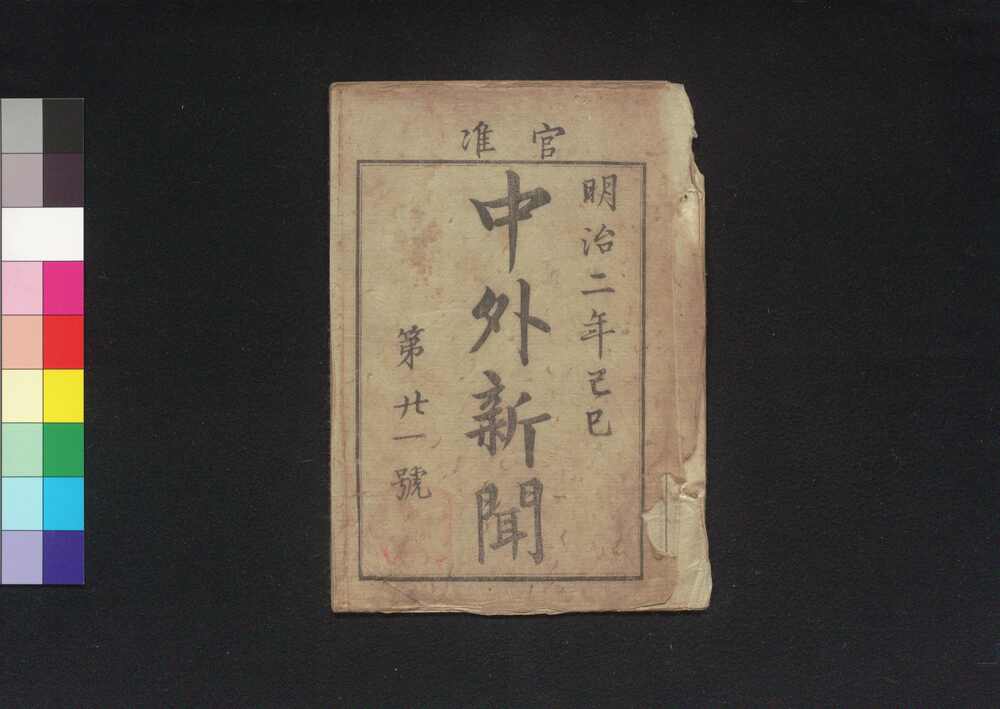 官准
明治二年己巳
中外新聞
第廿一號